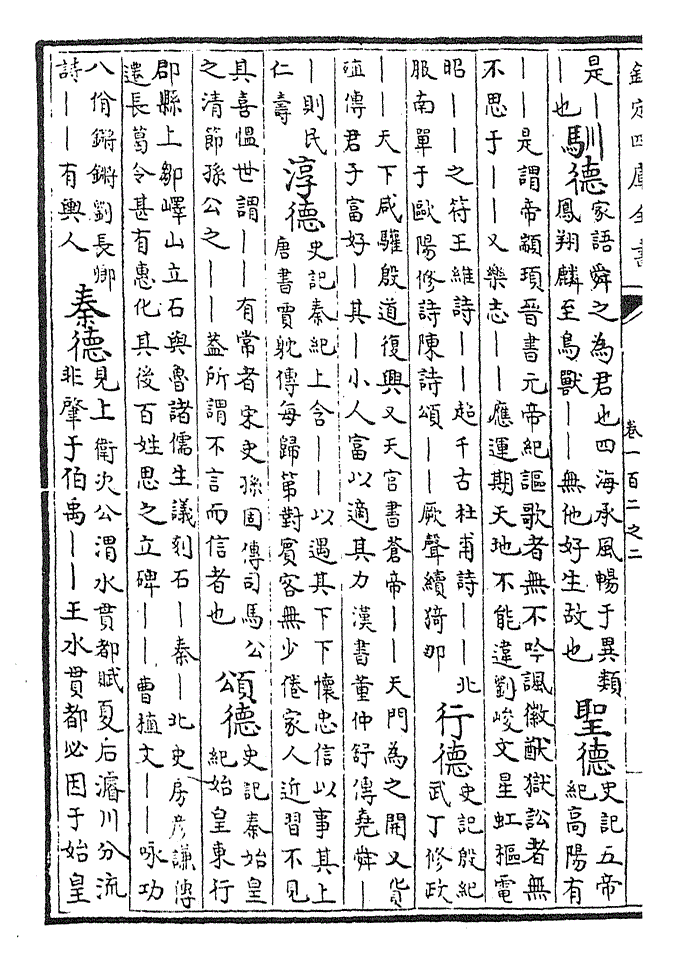 欽定四庫全書
卷一百二之二
是丨
丨也
馴德
家語舜之為君也四海承風暢于異類
鳳翔麟至鳥獸丨丨無他好生故也
聖德
史記五帝
紀高陽有
丨丨是謂帝顓頊晉書元帝紀謳歌者無不吟諷徽猷獄訟者無
不思于丨丨又樂志丨丨應運期天地不能違劉峻文星虹樞電
昭丨丨之符王維詩丨丨超千古杜甫詩丨丨北
服南單于歐陽修詩陳詩頌丨丨厥聲續猗那
行德
史記殷紀
武丁修政
丨丨天下咸驩殷道復興又天官書蒼帝丨丨天門為之開又貨
殖傳君子富好丨其丨小人富以適其力漢書董仲舒傳堯舜丨
丨則民
仁壽
淳德
史記秦紀上含丨丨以遇其下下懷忠信以事其上
唐書賈躭傳每歸第對賓客無少倦家人近習不見
其喜慍世謂丨丨有常者宋史孫固傳司馬公
之清節孫公之丨丨蓋所謂不言而信者也
頌德
史記秦始皇
紀始皇東行
郡縣上鄒嶧山立石與魯諸儒生議刻石丨秦丨北史房彥謙傳
遷長葛令甚有惠化其後百姓思之立碑丨丨曹植文丨丨咏功
八佾鏘鏘劉長卿
詩丨丨有輿人
秦德
見上衛次公渭水貫都賦夏后濬川分流
非肇于伯禹丨丨王水貫都必因于始皇